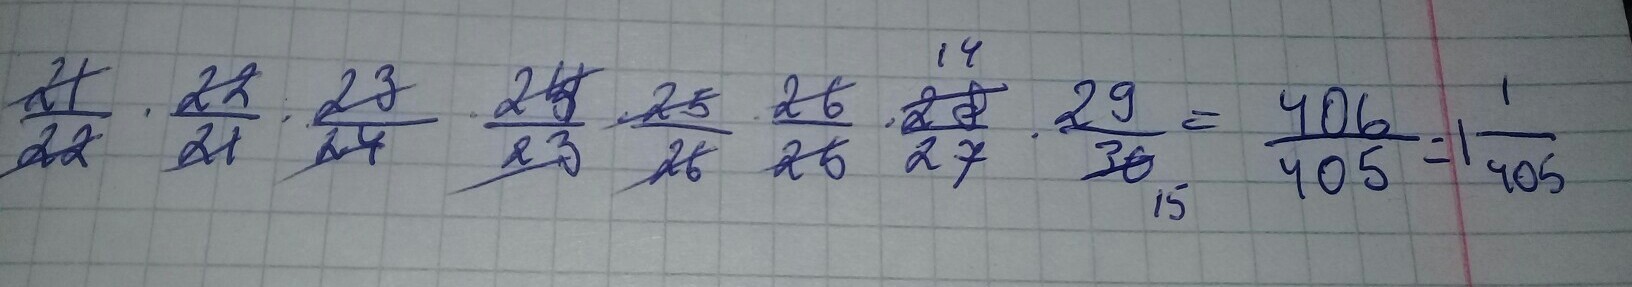 14
21/22 · 22/21 · 23/24 · 24/23 · 25/26 · 26/25 · 28/27 · 29/30 = 406/405 = 1 1/405
15